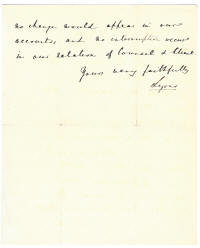 no change would appear in our
accounts, and no interruption occur
in our relation of Counsel & Client
Yours very faithfully
Lyons